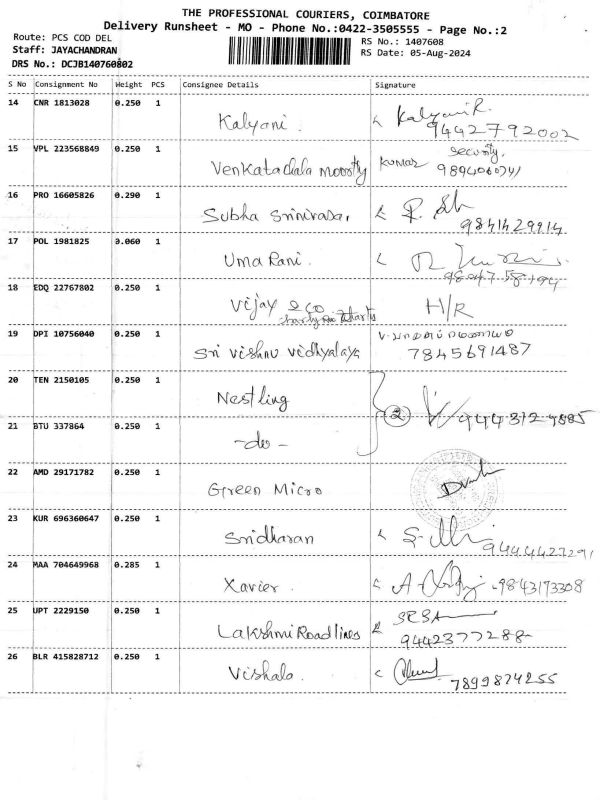 THE PROFESSIONAL COURIERS, COIMBATORE
Delivery Runsheet - MO - Phone No.:0422-3505555 - Page No.:2
Route: PCS COD DEL
RS No.: 1407608
Staff: JAYACHANDRAN
RS Date: 05-Aug-2024
DRS No.: DCJB140760802
S No Consignment No Weight PCS Consignee Details Signature
14 CNR 1813028 0.250 1 Kalyani. Kalyani R.
9442792002
15 VPL 223568849 0.250 1 Venkatachala moorthy Kumar security,
16 PRO 16605826 0.290 1 Subha Srinivasan
9841429914
17 POL 1981825 0.060 1 Uma Rani.
18 EDQ 22767802 0.250 1 Vijay & co H/R
19 DPI 10756040 0.250 1 Sri Vishnu Vidhyalaya
7845691487
20 TEN 2150105 0.250 1 Nestling
2
21 BTU 337864 0.250 1 -do-
22 AMD 29171782 0.250 1 Green Micro
23 KUR 696360647 0.250 1 Sridharan
9444427291
24 MAA 704649968 0.285 1 Xavier. 9843193308
25 UPT 2229150 0.250 1 Lakshmi Roadlines SRSA
9442377288
26 BLR 415828712 0.250 1 Vishala.
7899874255